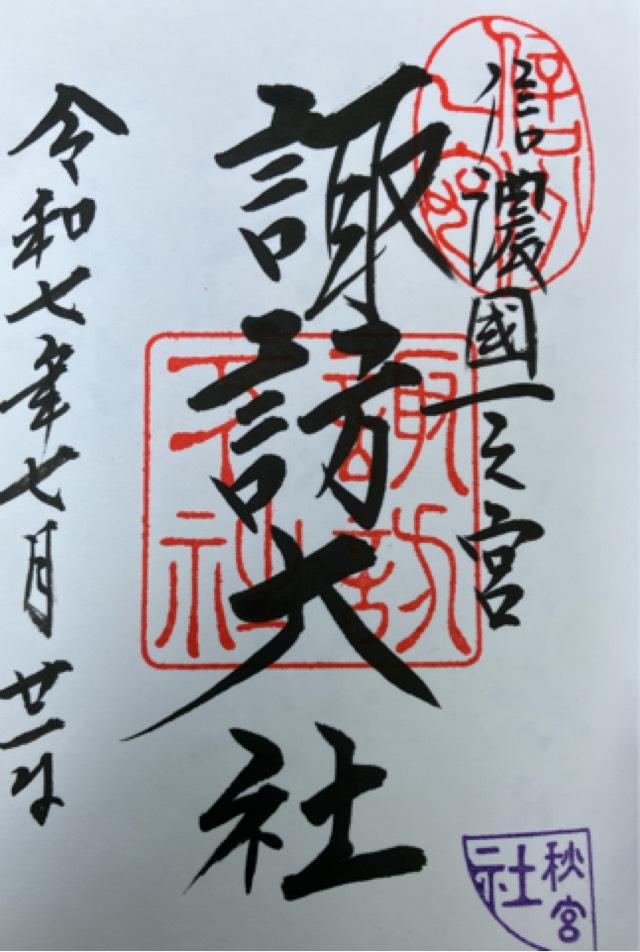 信濃國一之宮
諏訪大社
令和七年七月廿一日
諏訪
下社
秋宮
社